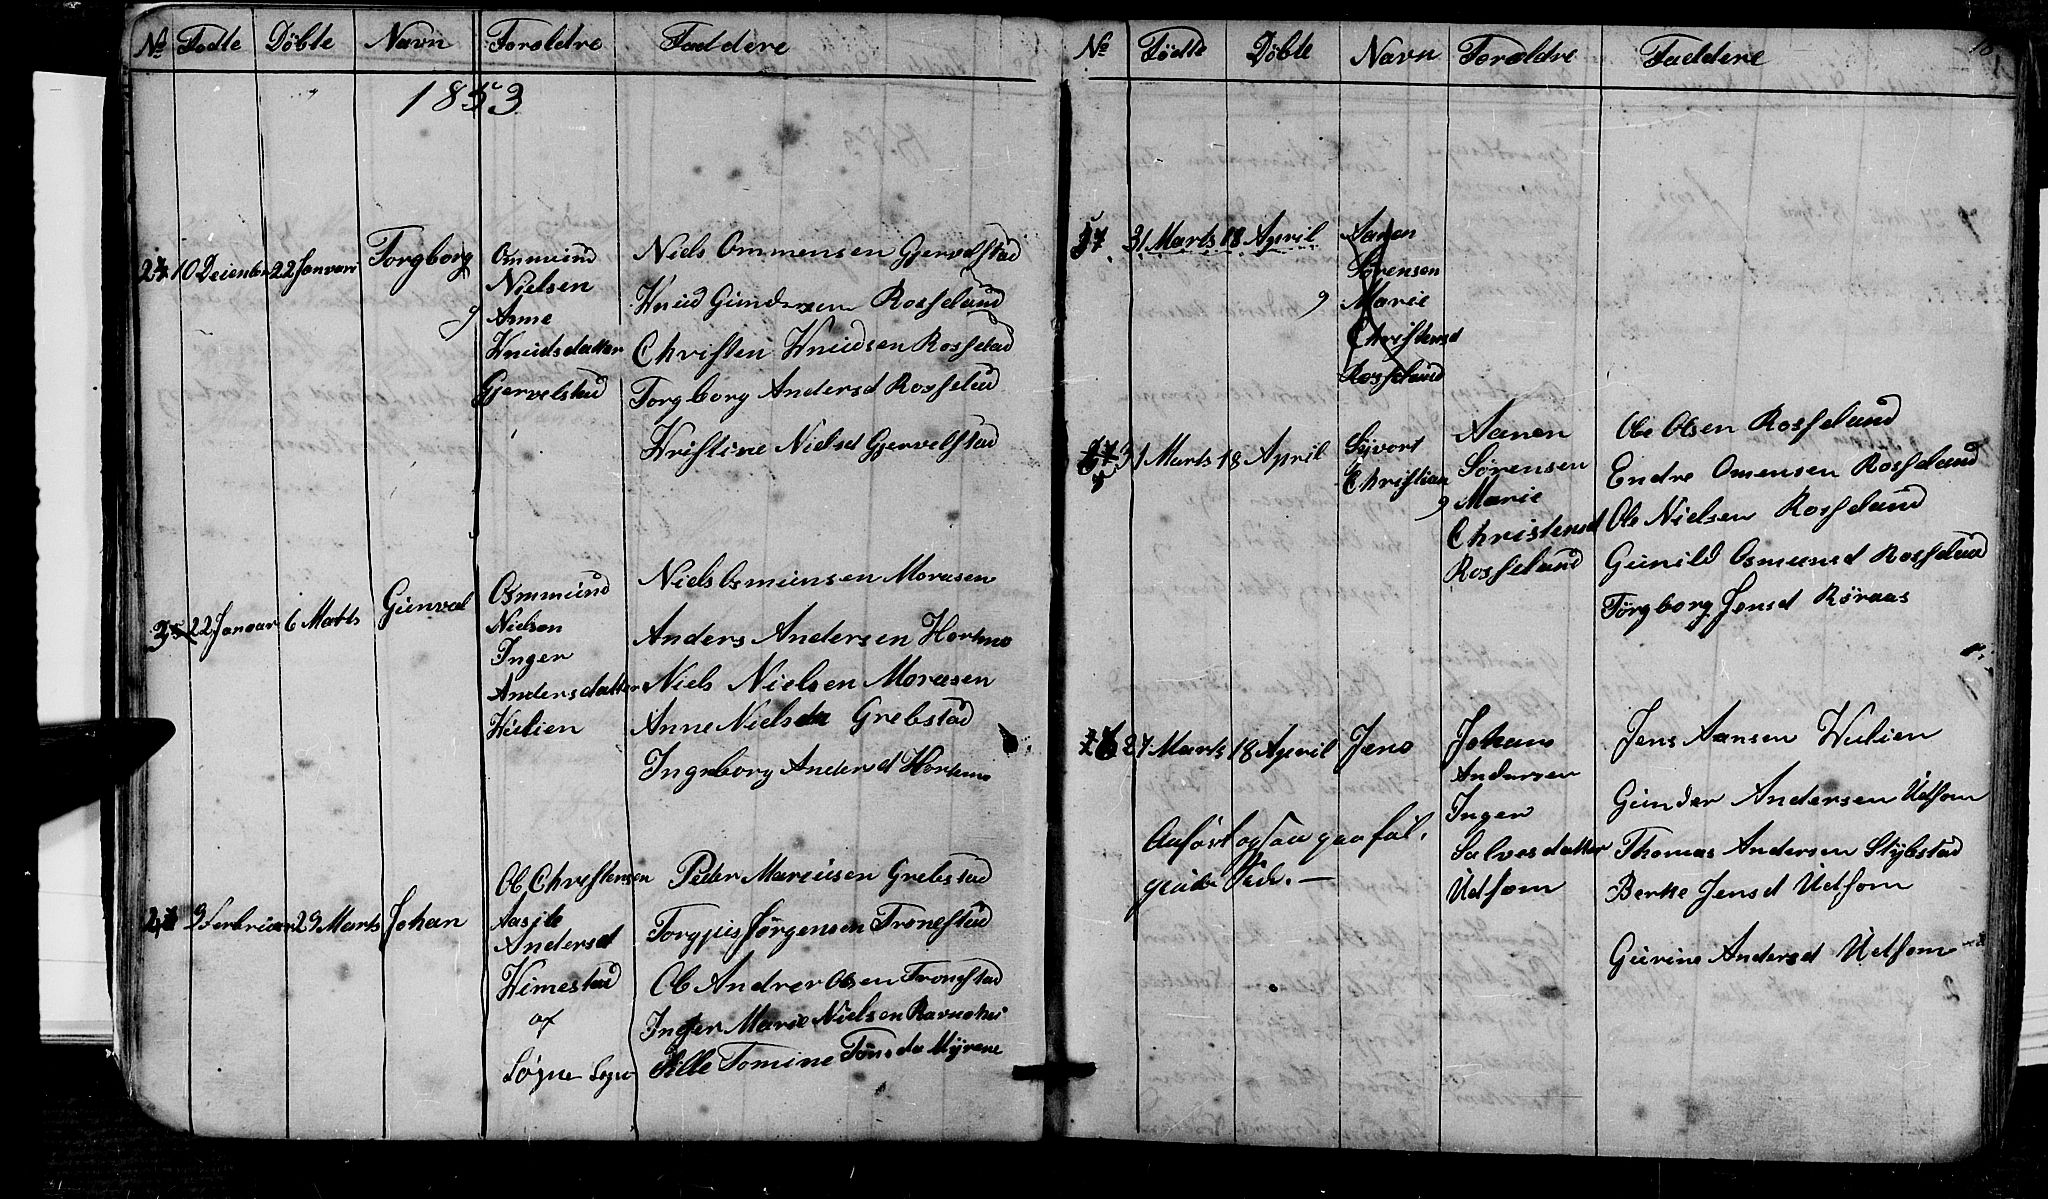 No Fødte Døbte Navn Foreldre Faddere
1853
2 10 Decienber 22 Januari Torgborg
Ommund
Nielsen
Anne
Knudsdatter
Gjervelstad
Niels Ommensen Gjervelstad
Knud Gundersen Rosseland
Christen Knudsen Rosselad
Torgborg Andersd Rosselad
Kristine Nielsd Gjervelstad
3 22 Januar 6 Marts Gunval
Osmmund
Nielsen
Inger
Andersdatter
Kulien
Niels Osmunsen Morasen
Anders Andersen Hortemo
Niels Nielsen Moraasen
Anne Nielsda Grebstad
Ingeborg Andersd Hortemo
9 Febriar 29 Marts Johan
Ole Christensen
Aasjle
Andersd
Kimestad
af
Søgne Sogn
Peder Mariusen Grebstad
Torgjus Jørgensen Tronestad
Ole Andrer Olsen Tronstad
Inger Marie Nielsen Ravnehei
Sille Tomine Tønsda Myrene
No Fødte Døbte Navn Foreldre Faddere
31 Marts 18 April
Aanen
Sørensen
Marie
Christensd
Rosseland
31 Marts 18 April Syvort
Christian
Aanen
Sørensen
Marie
Christensd
Rosseland
Ole Olsen Rosseland
Endre Omensen Rosseland
Ole Nielsen Rosseland
Gunild Osmunsd Rosseland
Torgborg Jensd Røraas
6 27 Marts 18 April Jens
Johans
Andersen
Inger
Salvesdatter
Udsom
Jens Aansen Kulien
Gunder Andersen Udsom
Thomas Andersen Stybstad
Berte Jensd Udsom
Gurine Andersd Udsom
Anført ogsaa paa føl-
gende Side.—